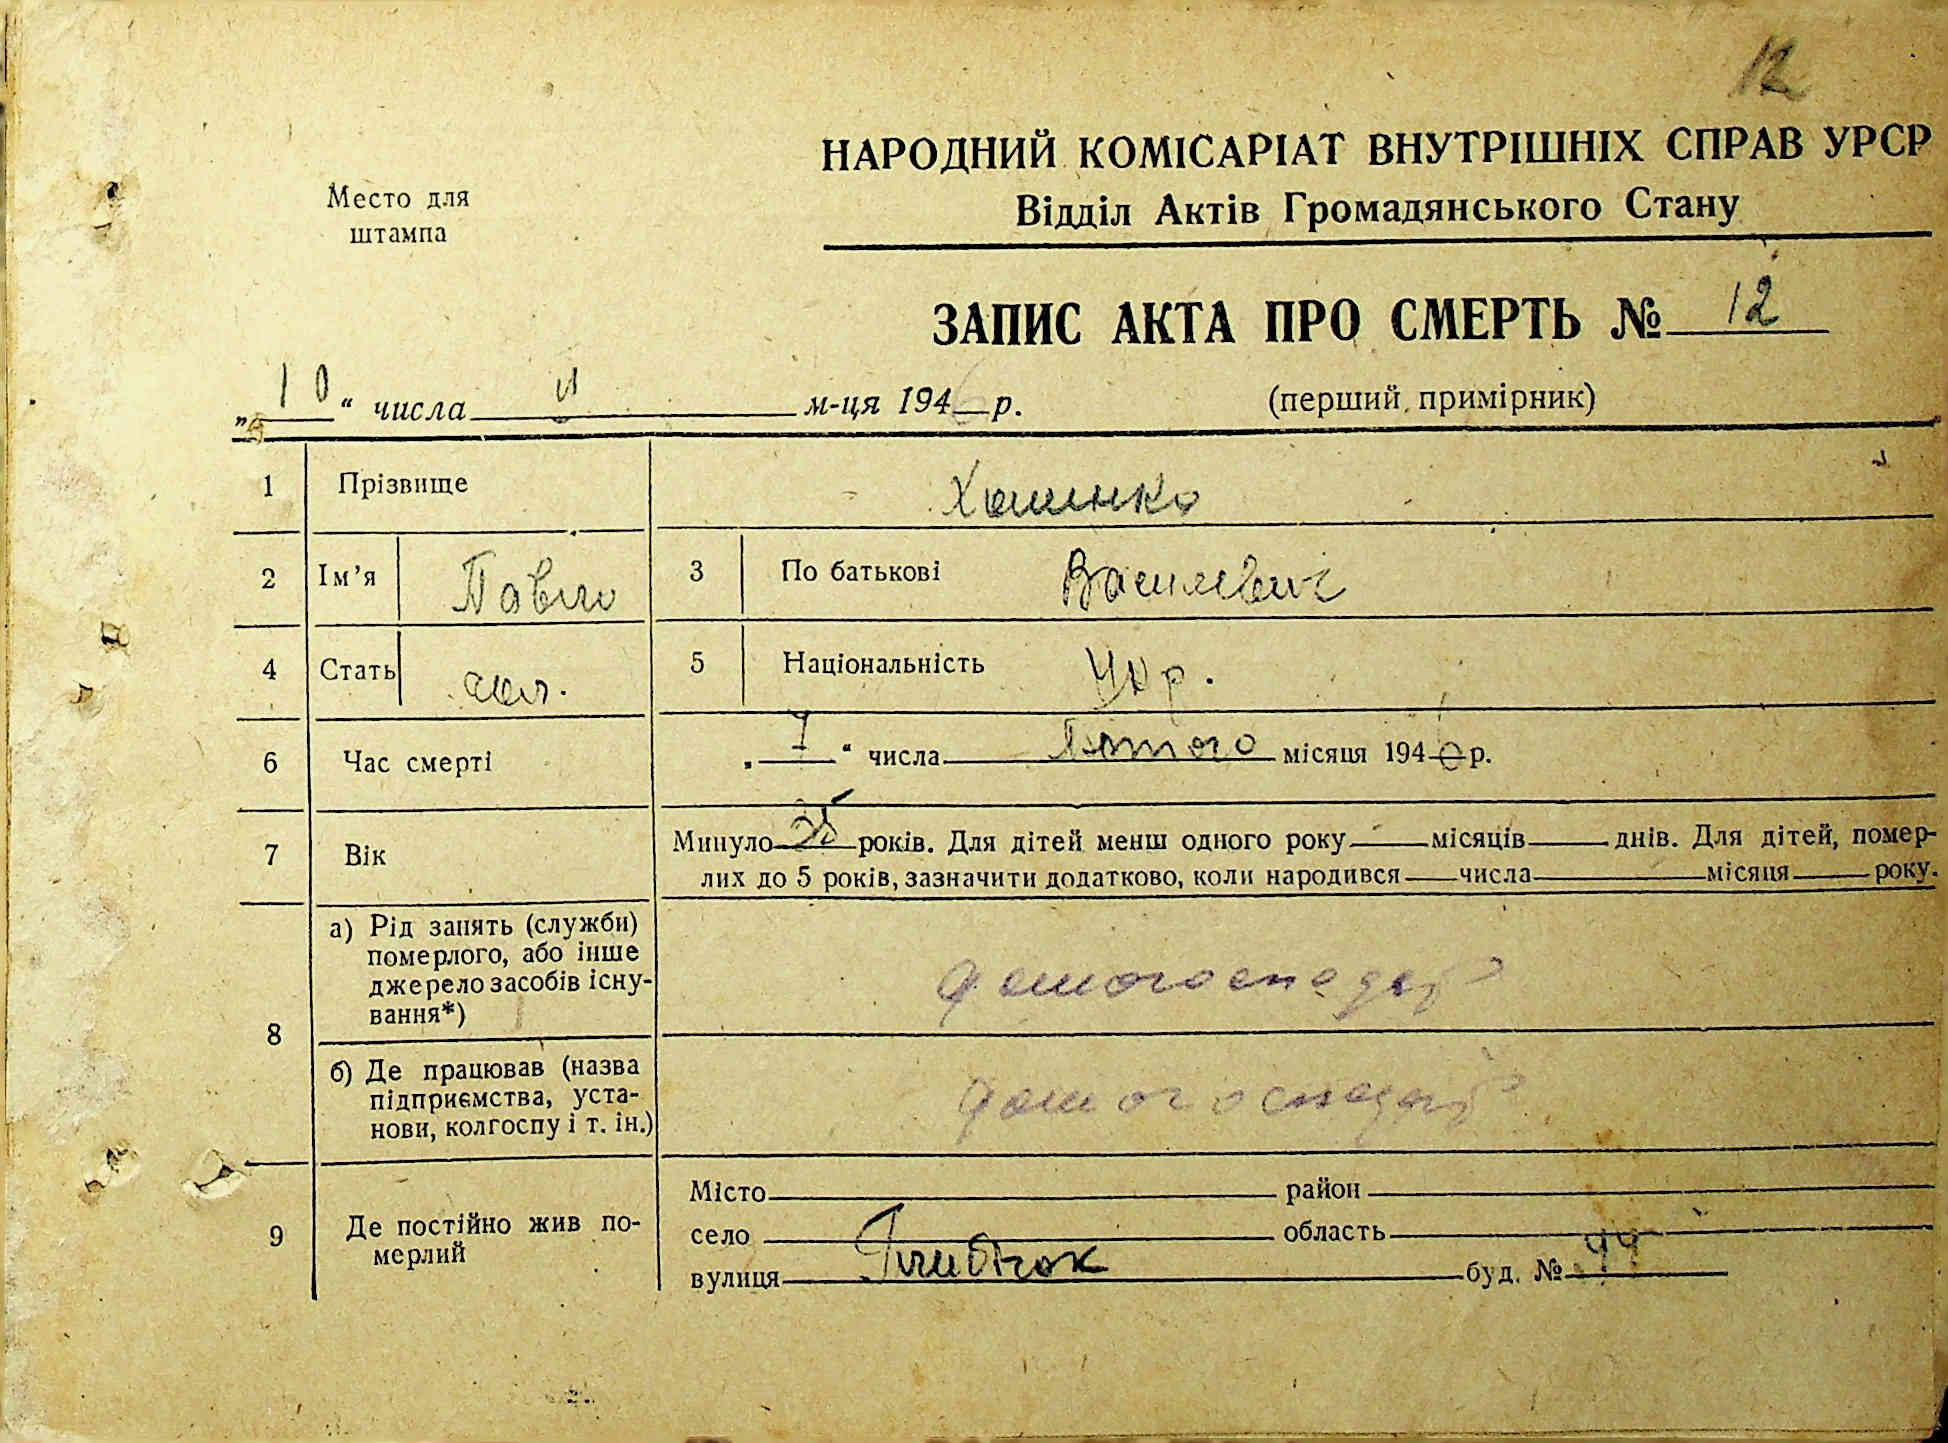 12
НАРОДНИЙ КОМІСАРІАТ ВНУТРІШНІХ СПРАВ УРСР
Відділ Актів Громадянського Стану
Место для
штампа
ЗАПИС АКТА ПРО СМЕРТЬ № 12
„10“ числа II м-ця 1946 р.
(перший примірник)
1 Прізвище Хоменко
2 Ім’я Павло 3 По батькові Василевич
4 Стать чол. 5 Національність Укр.
6 Час смерті „7“ числа Лютого місяця 1946 р.
7 Вік Минуло 35 років. Для дітей менш одного року — місяців — днів. Для дітей, помер-
лих до 5 років, зазначити додатково, коли народився — числа — місяця — року.
8 а) Рід занять (служби)
померлого, або інше
джерело засобів існу-
вання*) домогосподар
б) Де працював (назва
підприємства, уста-
нови, колгоспу і т. ін.) домогосподар
9 Де постійно жив по-
мерлий
Місто район
село область
вулиця буд. № 44